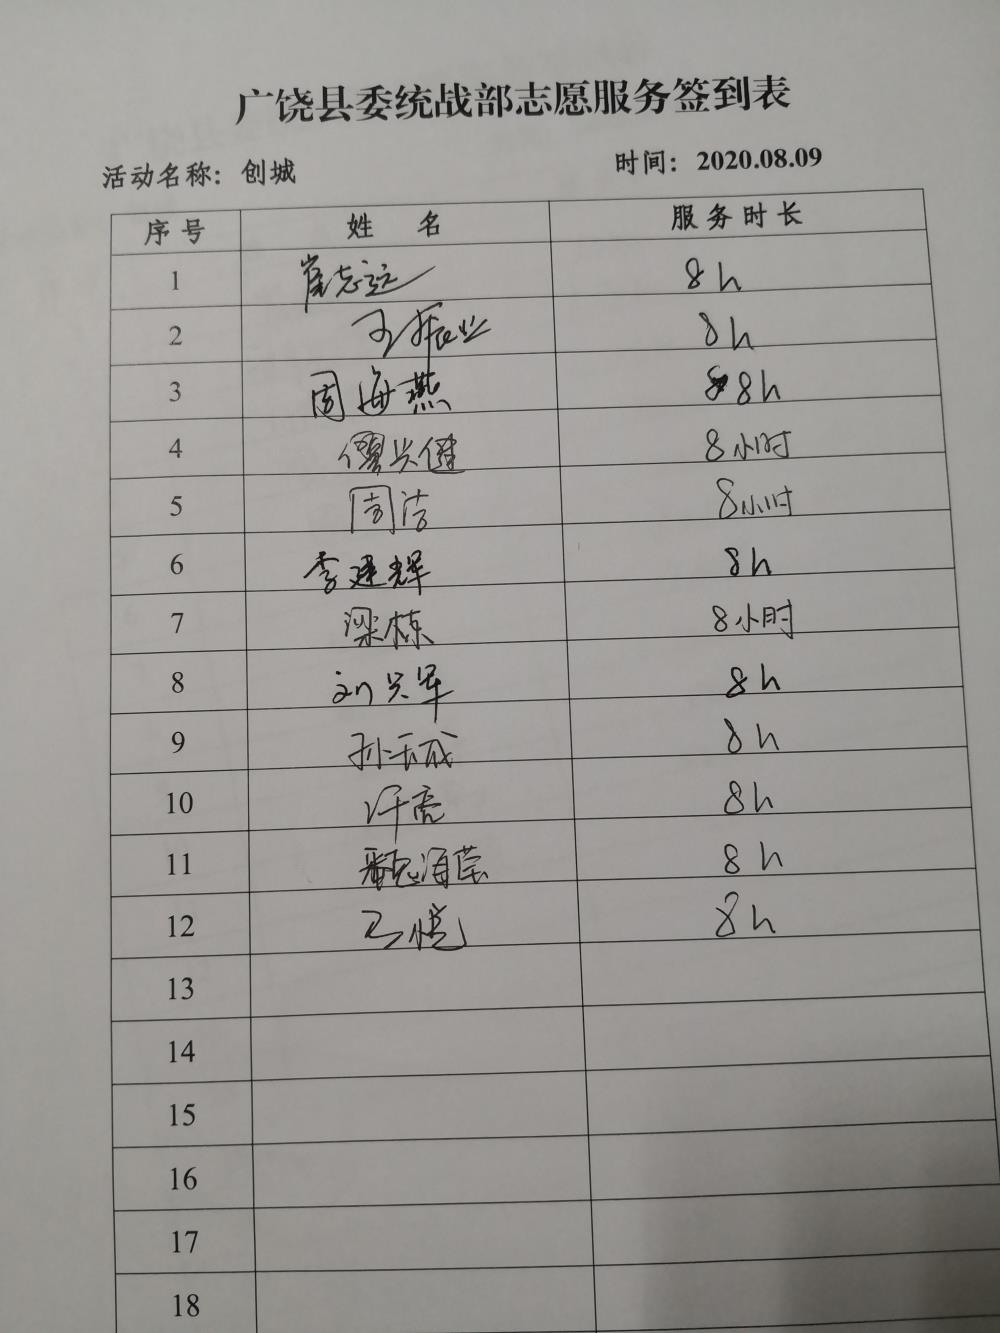 广饶县委统战部志愿服务签到表
活动名称：创城 时间：2020.08.09
序号 姓 名 服务时长
1 崔志远 8h
2 王振业 8h
3 周海燕 8h
4 兴健 8小时
5 周洁 8小时
6 李建辉 8h
7 梁栋 8小时
8 刘兴军 8h
9 孙玉成 8h
10 许亮 8h
11 魏海莹 8h
12 马悦 8h
13
14
15
16
17
18